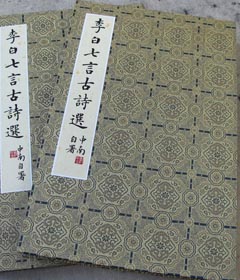 李白七言古詩選
中南自署
李白七言古詩選
中南
自署